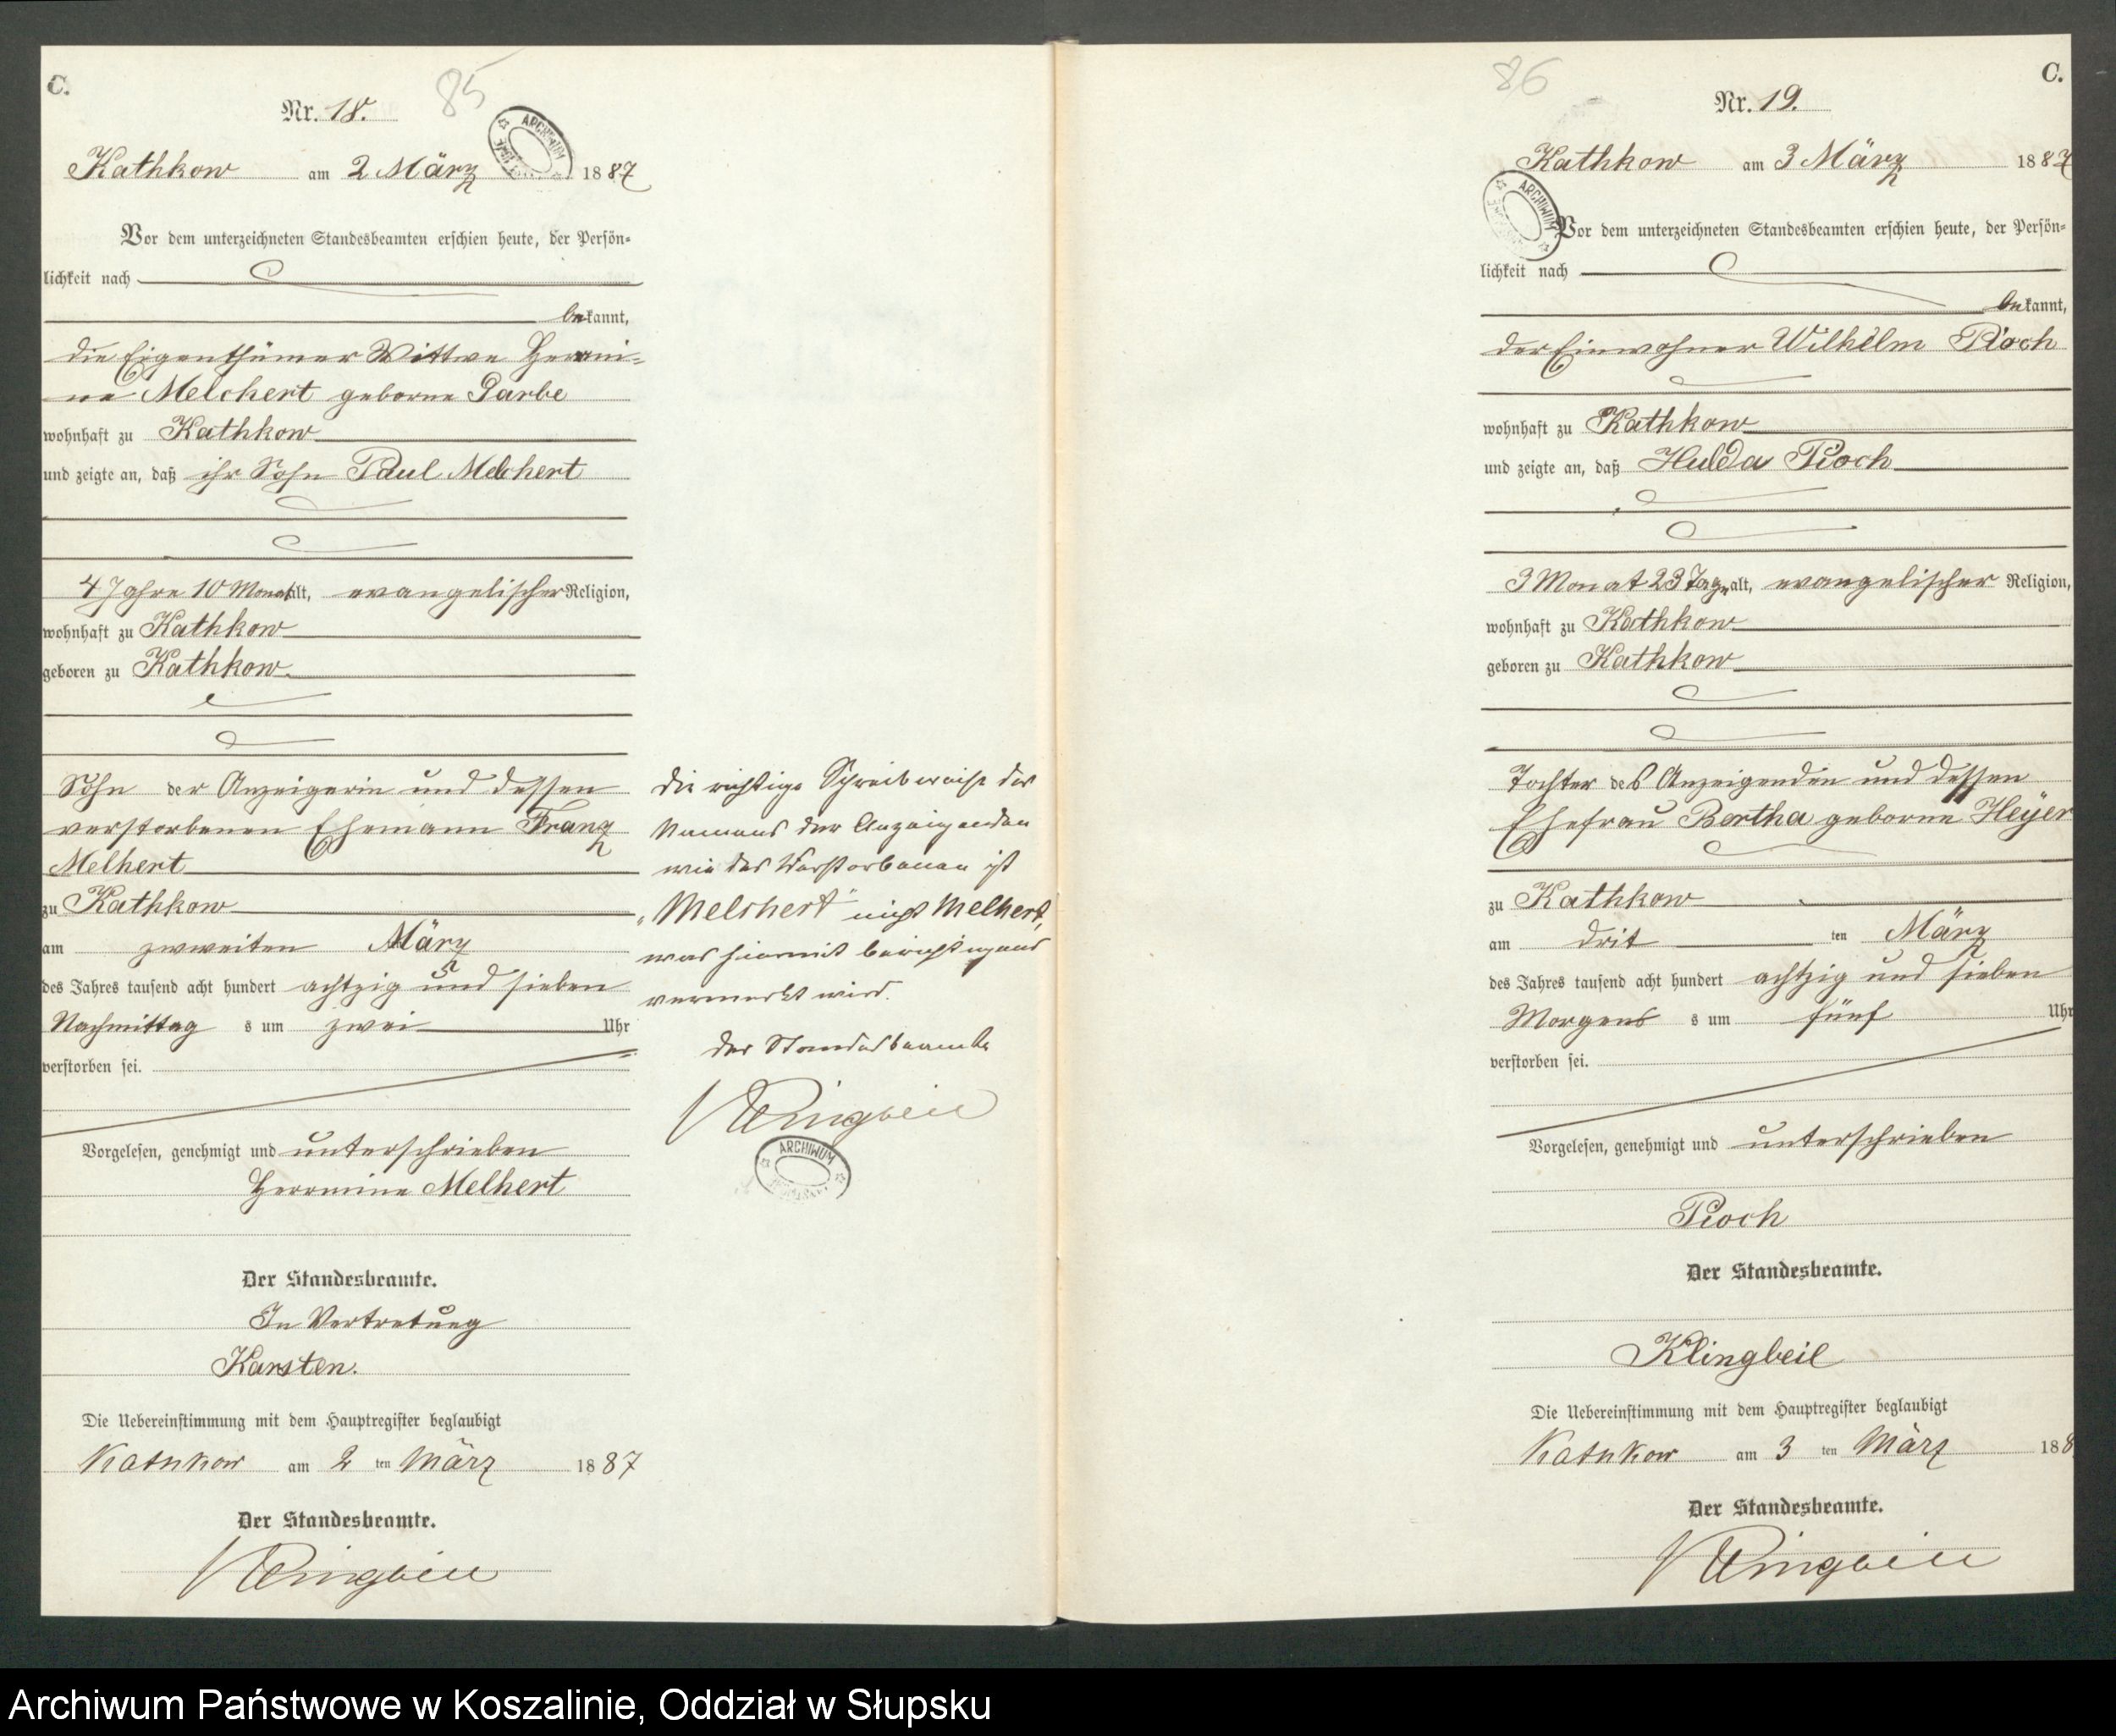 C.
85
Nr. 18.
ARCHIWUM
Kathkow am 2 März 1887
Vor dem unterzeichneten Standesbeamten erschien heute, der Persön-
lichkeit nach
bekannt,
die Eigenthümer Wittwe Hermi-
ne Melchert geborne Garbe
wohnhaft zu Kathkow
und zeigte an, daß ihr Sohn Paul Melchert
4 Jahre 10 Monat alt, evangelischer Religion,
wohnhaft zu Kathkow
geboren zu Kathkow
Sohn der Anzeigerin und dessen
verstorbenen Ehemann Franz
Melhert
zu Kathkow
am zweiten März
des Jahres tausend acht hundert achtzig und sieben
Nachmittag s um zwei Uhr
verstorben sei.
Vorgelesen, genehmigt und unterschrieben
Herrmine Melhert
Der Standesbeamte.
In Vertretung
Karsten.
Die Uebereinstimmung mit dem Hauptregister beglaubigt
Kathkow am 2 ten März 1887
Der Standesbeamte.
Klingbeil
Die richtige Schreibweise des
Namens der Anzeigenden
wie des Verstorbenen ist
"Melchert" nicht Melhert,
was hiermit berichtigend
vermerkt wird.
Der Standesbeamte
Klingbeil
ARCHIWUM
86
C.
Nr. 19.
Kathkow am 3 März 1887
ARCHIWUM
Vor dem unterzeichneten Standesbeamten erschien heute, der Persön-
lichkeit nach
bekannt,
der Einwohner Wilhelm Pioch
wohnhaft zu Kathkow
und zeigte an, daß Hulda Pioch
3 Monat 23 Tage alt, evangelischer Religion,
wohnhaft zu Kathkow
geboren zu Kathkow
Tochter des Anzeigenden und dessen
Ehefrau Bertha geborne Heyer
zu Kathkow
am drit ten März
des Jahres tausend acht hundert achtzig und sieben
Morgens s um fünf Uhr
verstorben sei.
Vorgelesen, genehmigt und unterschrieben
Pioch
Der Standesbeamte.
Klingbeil
Die Uebereinstimmung mit dem Hauptregister beglaubigt
Kathkow am 3 ten März 188
Der Standesbeamte.
Klingbeil
Archiwum Państwowe w Koszalinie, Oddział w Słupsku